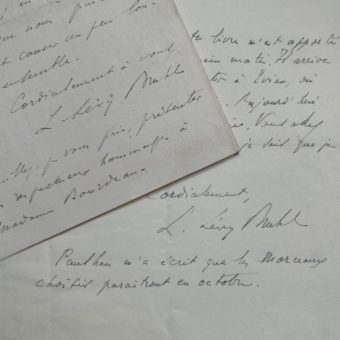 que nous puis
et causer un peu lon-
ensemble.
Cordialement à vous
L. Lévy Bruhl
je vous prie, présenter
respectueux hommages à
Madame Bourdeau.
livre m'est apporté
matin. Il arrive
à Evian, où
Aujourd'hui
je sais que je
Cordialement,
L. Lévy Bruhl
Paulhan m'a écrit que les Morceaux
choisis paraîtront en octobre.